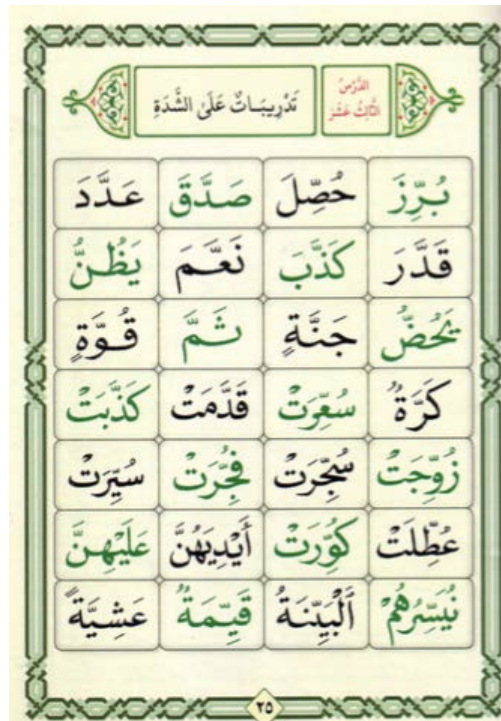 الدَّرْسُ
الثَّالِثُ عَشَرَ
تَدْرِيبَاتٌ عَلَى الشَّدَّةِ
بُرِّزَ حُصِّلَ صَدَّقَ عَدَّدَ
قَدَّرَ كَذَّبَ نَعَّمَ يَظُنُّ
يَحُضُّ جَنَّةٍ ثَمَّ قُوَّةٍ
كَرَّةٌ سُعِّرَتْ قَدَّمَتْ كَذَّبَتْ
زُوِّجَتْ سُجِّرَتْ فُجِّرَتْ سُيِّرَتْ
عُطِّلَتْ كُوِّرَتْ أَيْدِيَهُنَّ عَلَيْهِنَّ
نُيَسِّرُهُمْ الْبَيِّنَةُ قَيِّمَةٌ عَشِيَّةً
٢٥